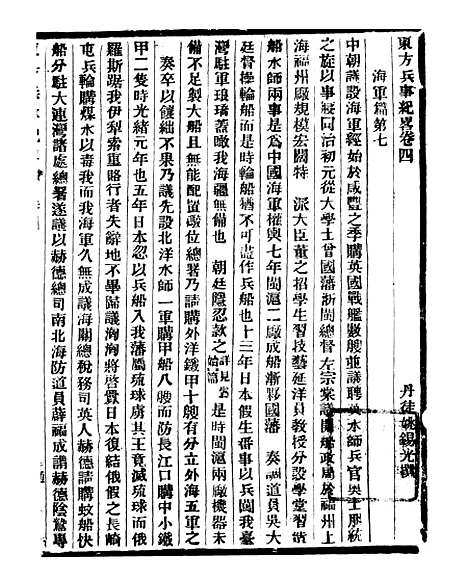 東方兵事紀畧卷四
丹徒姚錫光撰
海軍篇第七
中朝議設海軍經始於咸豐之季購英國戰艦數艘並議聘英水師兵官奧士朋統
之旋以事寢同治初元從大學士曾國藩浙閩總督左宗棠議開船政局於福州上
海福州廠規模宏闊特 派大臣董之招學生習技藝延洋員敎授分設學堂習西
船水師兩事是為中國海軍權輿七年閩滬二廠成船漸夥國藩 奏調道員吳大
廷督操輪船而是時輪船猶不可盡作兵船也十三年日本假生番事以兵闖我臺
灣駐軍琅璚蓋瞰我海疆無備也 朝廷隱忍款之詳見 始篇 是時閩滬兩廠機器未
充不能製大船且無能配置礮位總署乃請購外洋鐵甲十艘有分立外海五軍之
奏卒以餽絀不果乃議先設北洋水師一軍購甲船八艘而防長江口購中小鐵
甲二隻時光緒元年也五年日本忽以兵船入我藩屬琉球虜其王竟滅琉球而俄
羅斯踞我伊犁索重賂行者失辭地不畢歸議洶洶將啓釁日本復結俄假之長崎
屯兵輪購煤水以毒我而我海軍久無成議海關總稅務司英人赫德請購蚊船快
船分駐大連灣諸處總署遂議以赫德總司南北海防道員薛福成謂赫德陰鷙專